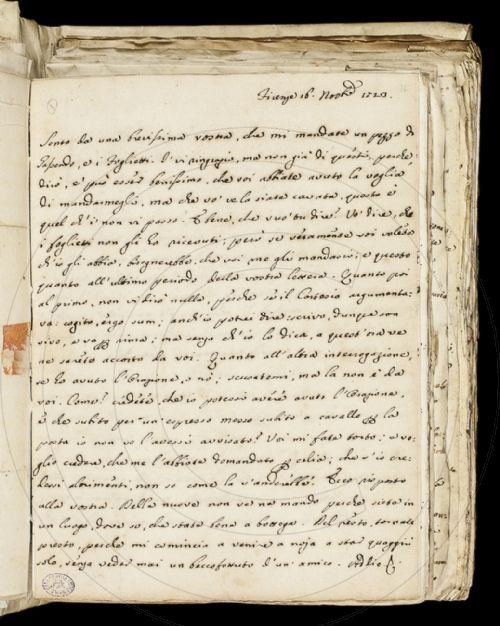 Firenze 16. Novbre 1723.
Sento da una brevissima vostra, che mi mandate un pezzo di
e i Foglietti. Vi ringrazio, ma non già di questi, perche,
dirò, e può esser bonissimo, che voi abbiate avuto la voglia
di mandarmegli, ma che vo' ve la siate cavata, questo è
quel ch'i' non vi posso. E bene, che vuo' tu dire? Vo' dire, che
i foglietti non gli ho ricevuti; però se veramente voi volete
ch'io gli abbia, bisognerebbe, che voi me gli mandaste; e questo
quanto all'ultimo periodo della vostra lettera. Quanto poi
al primo, non vi dirò nulla, perche se il Cartesio argumenta-
va: cogito, ergo sum; anch'io potrei dire: scrivo, dunque son
vivo, e va p rima; ma senza ch'io lo dica, a quest'ora ve
ne sarete accorto da voi. Quanto all'altra interrogazione,
se ho avuto l' o nò; scusatemi, ma la non è da
voi. Come? credete, che io potessi avere avuto l'
e che subito per un espresso messo subito a cavallo p la
posta io non vo l'avessi avvisato? Voi mi fate torto; o vo-
glio credere, che me l'abbiate domandato p celia; che s'io cre-
dessi altrimenti, non so come la s'anderebbe. Ecco risposto
alla vostra. Delle nuove non ve ne mando perche siete in
un luogo, dove so, che state bene a bottega. Del resto, tornate
presto, perche mi comincia a venire a noja a star quaggiù
solo, senza veder mai un beccofottuto d'un amico. Addio